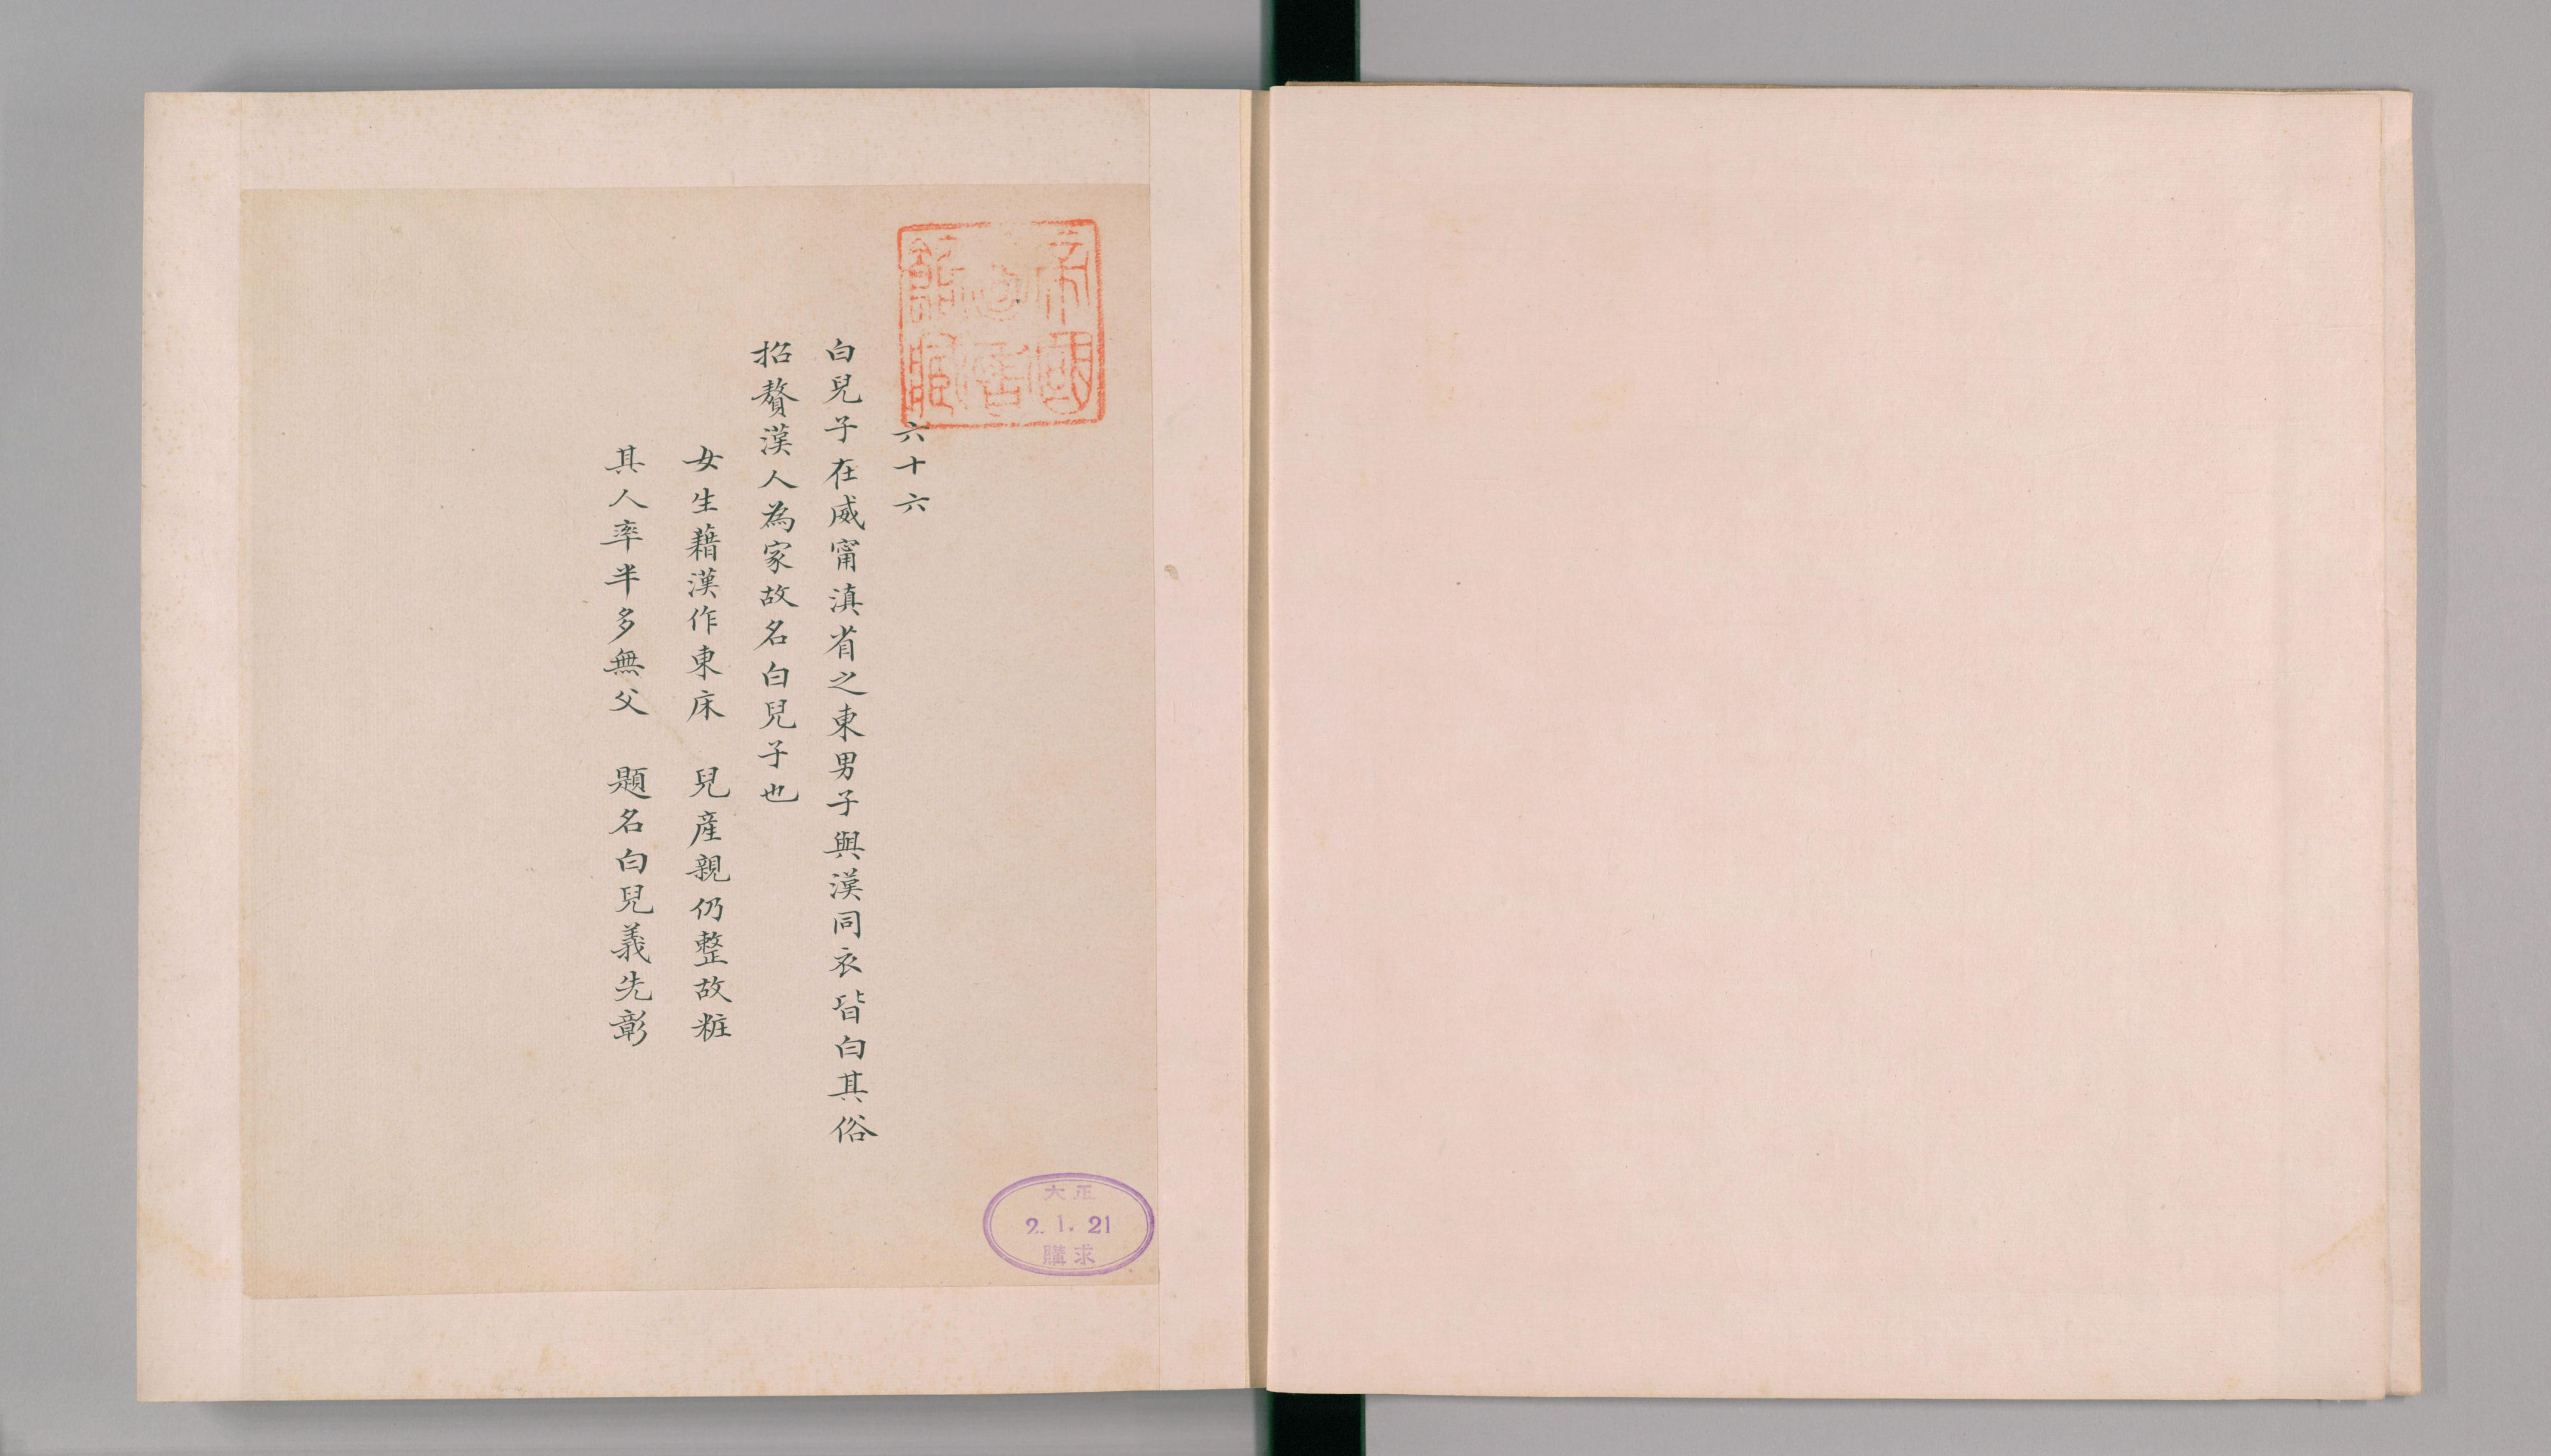 帝國
圖書
館藏
六十六
白兒子在威甯滇省之東男子與漢同衣皆白其俗
招贅漢人為家故名白兒子也
女生藉漢作東床　兒產親仍整故粧
其人率半多無父　題名白兒義先彰
大正
2. 1. 21
購求